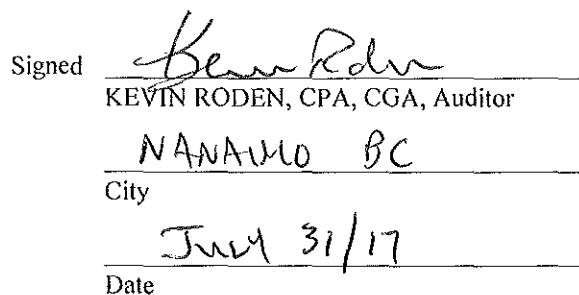 Signed Kevin Roden
KEVIN RODEN, CPA, CGA, Auditor
NANAIMO BC
City
July 31/17
Date